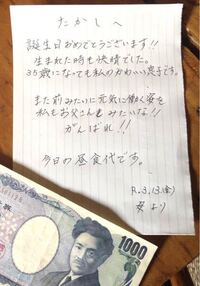 たかしへ
誕生日おめでとうございます!!
生まれた時も快晴でした。
35歳になっても私のかわいい息子です。
また前みたいに元気に働く姿を
私もお父さんもみたいな!!
がんばれ!!
今日の昼食代です。
R.3.13.(金)
母より
1000